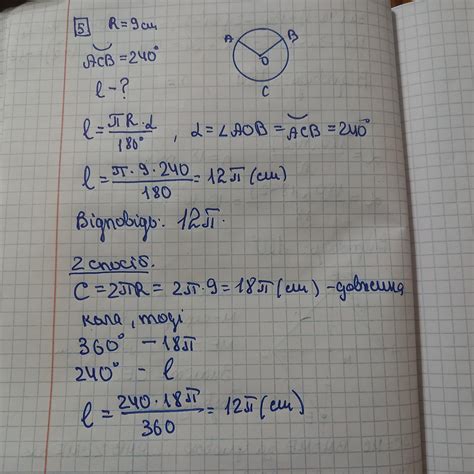 5 R = 9 см
A B
O
C
ACB = 240°
l - ?
l = πR·α / 180° , α = ∠AOB = ACB = 240°
l = π·9·240 / 180 = 12π (см)
Відповідь: 12π.
2 спосіб.
C = 2πR = 2π·9 = 18π (см) - довжина
кола, тоді
360° - 18π
240° - l
l = 240·18π / 360 = 12π (см)